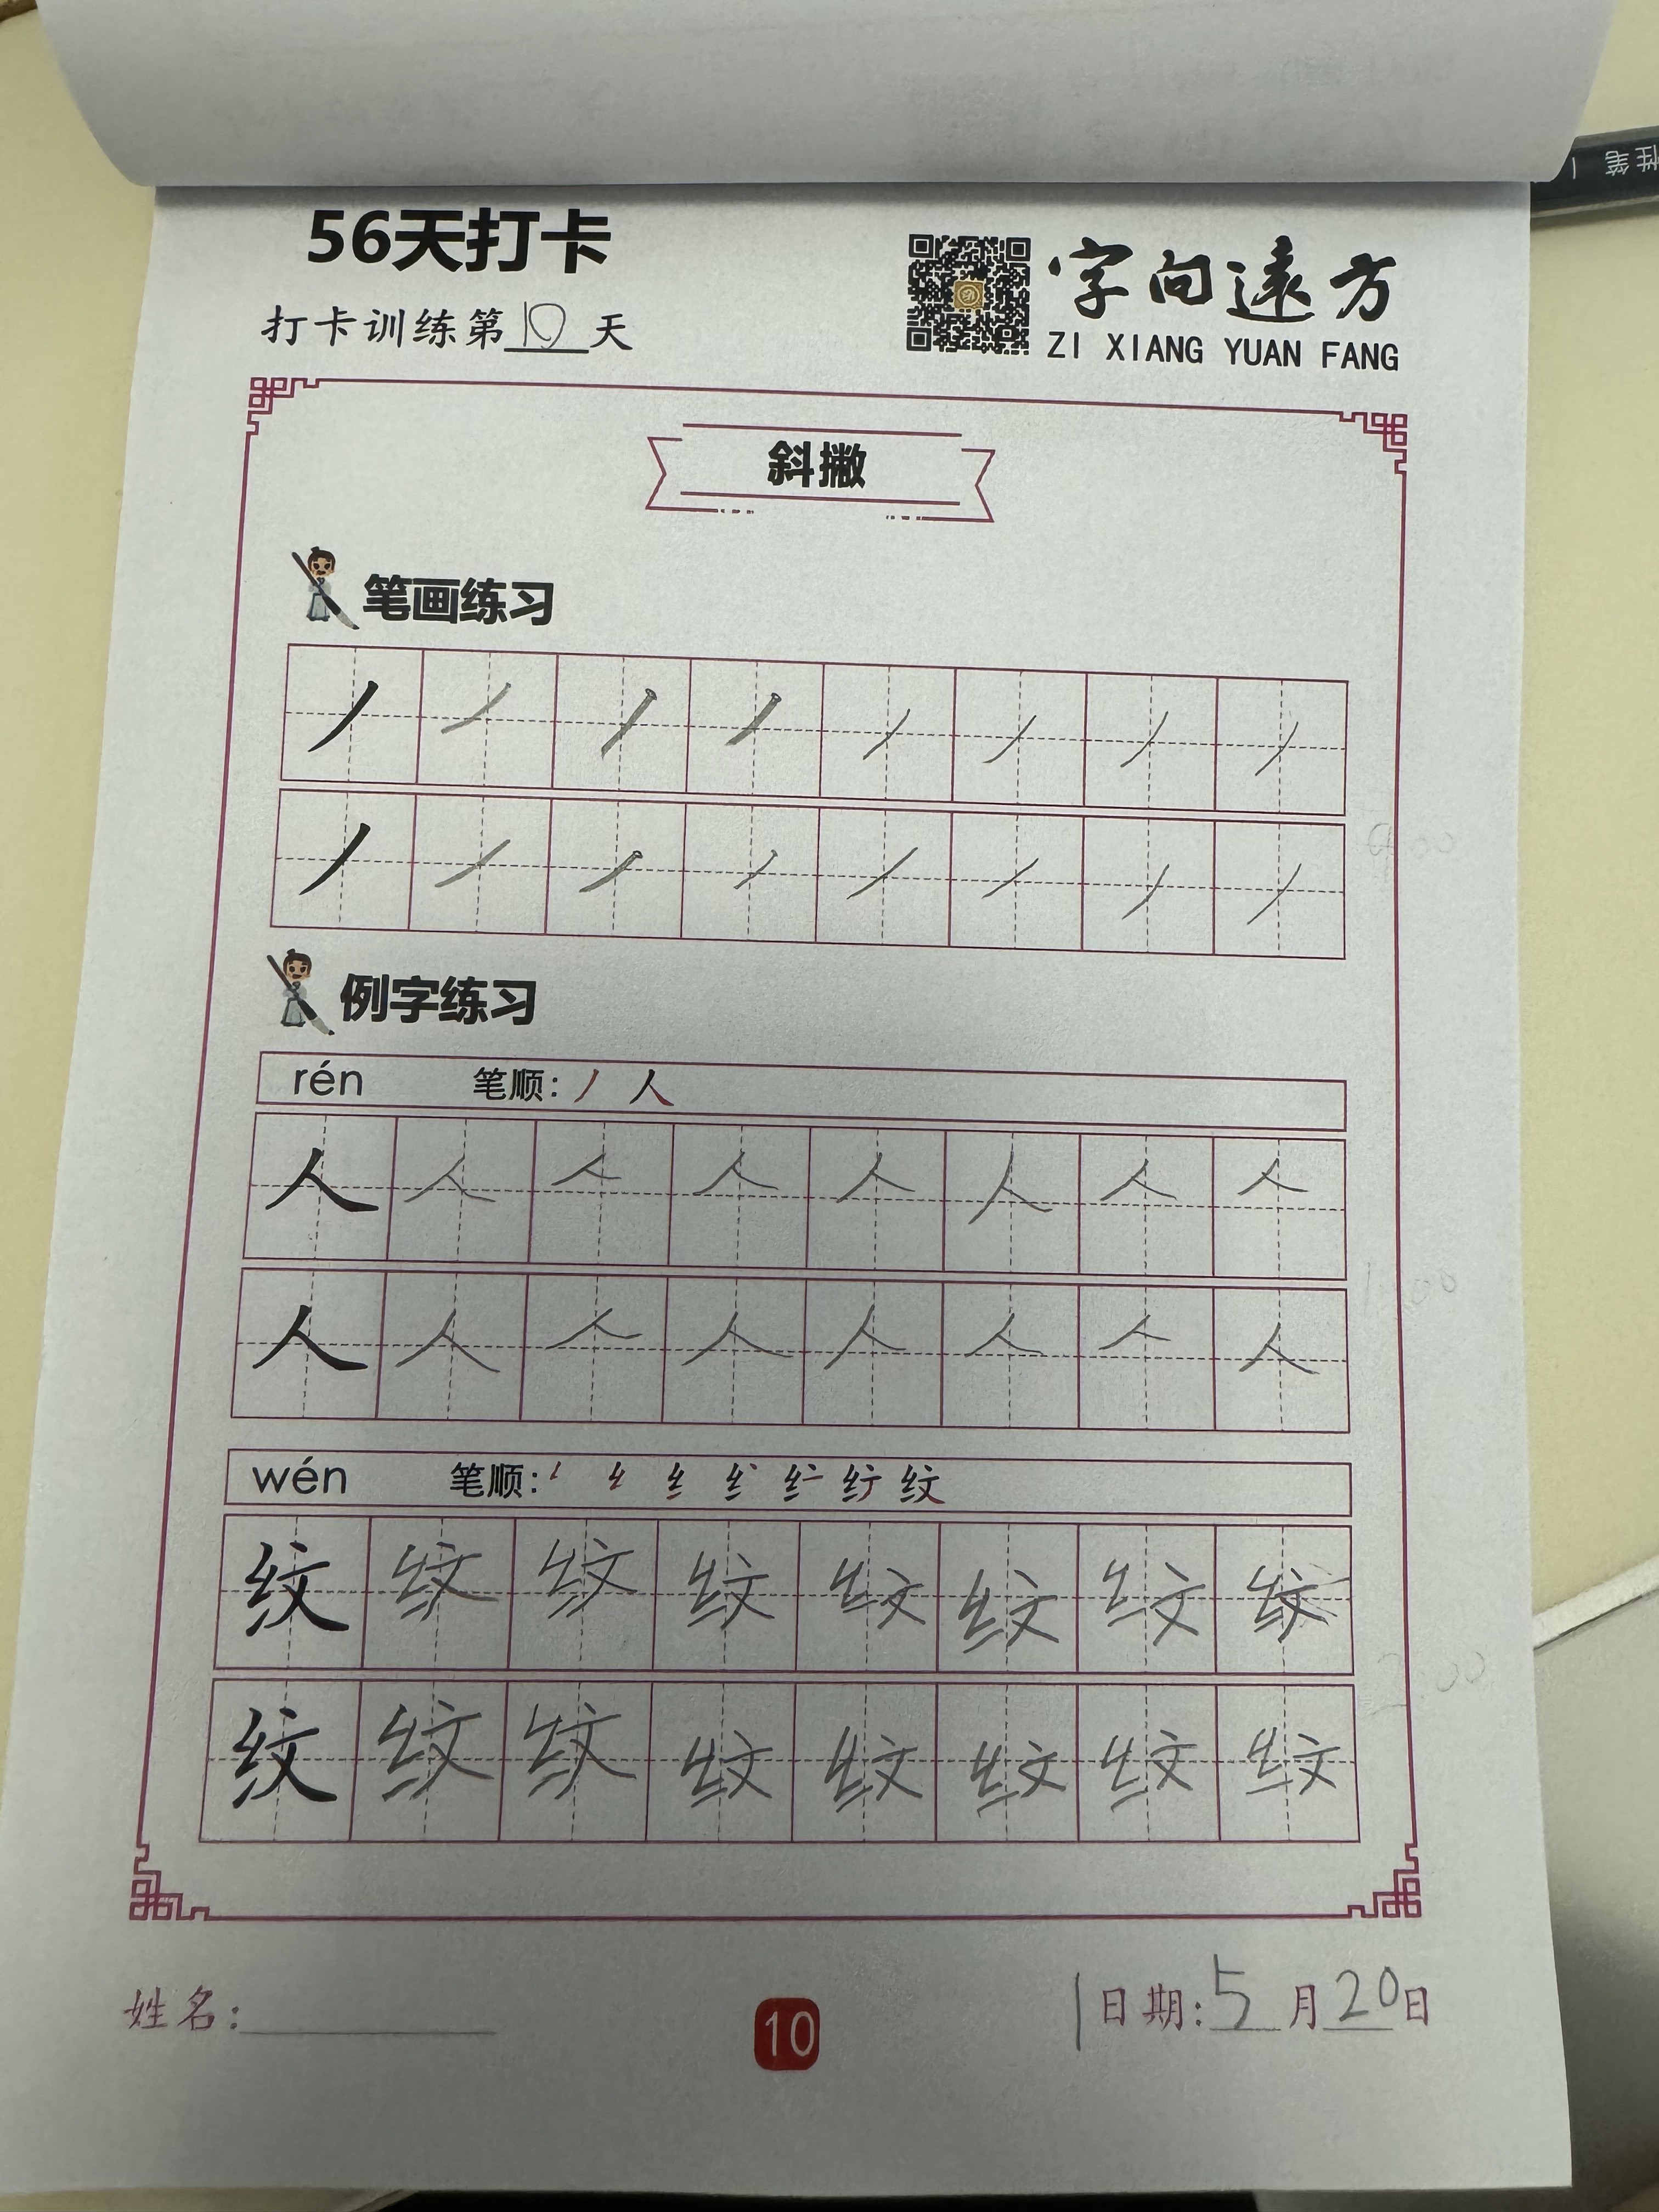 性笔
56天打卡
打卡训练第10天
字向遠方
ZI XIANG YUAN FANG
斜撇
笔画练习
丿 丿 丿 丿 丿 丿 丿 丿
丿 丿 丿 丿 丿 丿 丿 丿
例字练习
rén 笔顺: 丿 人
人 人 人 人 人 人 人 人
人 人 人 人 人 人 人 人
wén 笔顺: 纹
纹 纹 纹 纹 纹 纹 纹 纹
纹 纹 纹 纹 纹 纹 纹 纹
姓名:
10
日期:5月20日